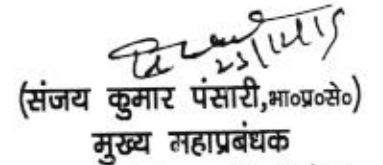 23/12/15
(संजय कुमार पंसारी,भा०प्र०से०)
मुख्य महाप्रबंधक